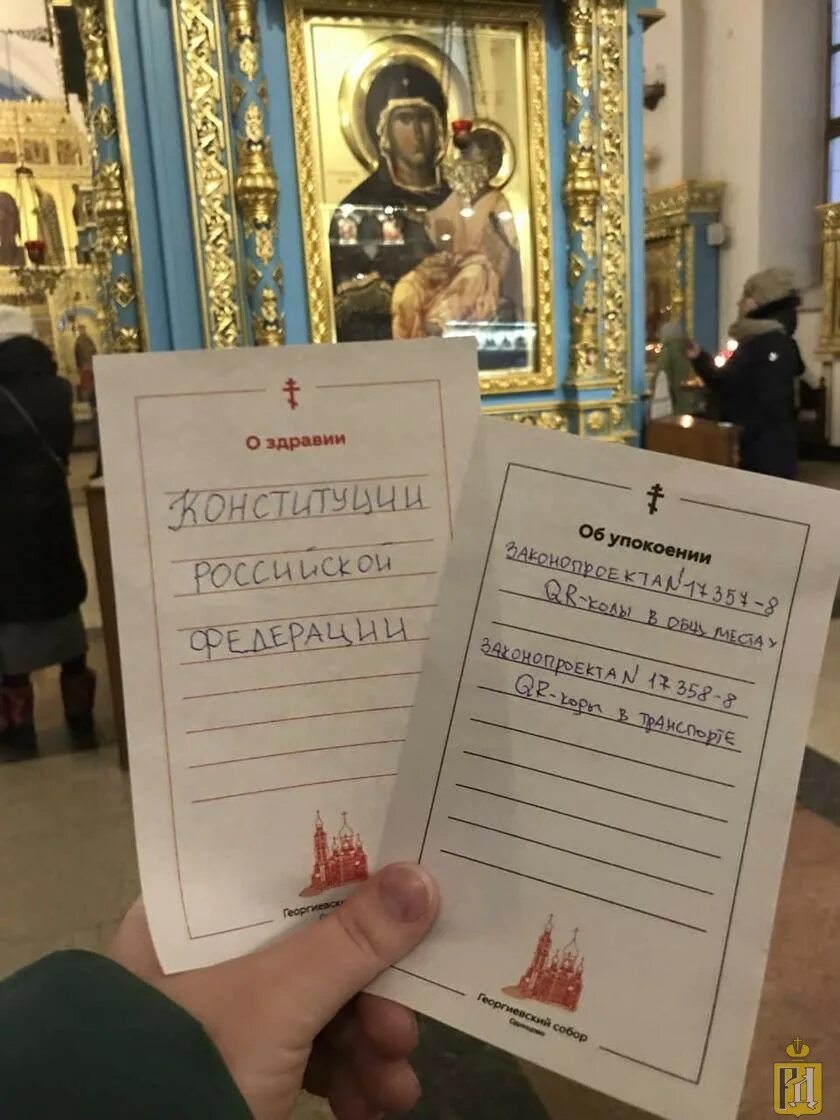 О здравии
КОНСТИТУЦИИ
РОССИЙСКОЙ
ФЕДЕРАЦИИ
Георгиевск
Об упокоении
ЗАКОНОПРОЕКТА N 17357-8
QR-коды в общ местах
ЗАКОНОПРОЕКТА N 17358-8
QR-коды в транспорте
Георгиевский собор
Одинцово
РД